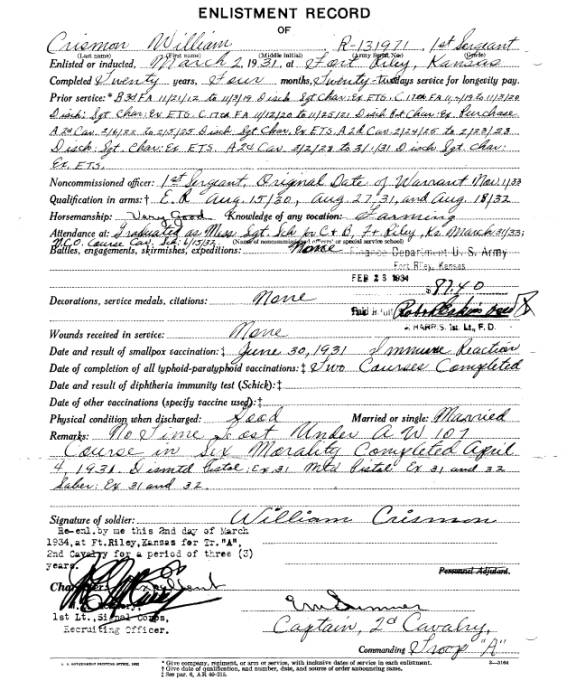 ENLISTMENT RECORD
OF
Crismon William R-131971, 1st Sergeant
(Last name) (First name) (Middle initial) (Army serial No.) (Grade)
Enlisted or inducted, March 2, 1931, at Fort Riley, Kansas
Completed Twenty years, Four months, Twenty-two days service for longevity pay.
Prior service:* B 3d FA 11/21/12 to 11/3/19 Disch Sgt Char: Ex ETS. C 17th FA 11/4/19 to 11/3/20
Disch: Sgt Char: Ex ETS. C 17th FA 11/12/20 to 11/25/21 Disch Pvt Char: Ex. Purchase
A 2d Cav. 2/6/22 to 2/5/25 Disch. Sgt Char. Ex ETS. A 2d Cav 2/24/25 to 2/23/28
Disch. Sgt. Char: Ex. ETS. A 2d Cav. 2/2/28 to 3/1/31 Disch Sgt. Char:
Ex. ETS.
Noncommissioned officer: 1st Sergeant, Original Date of Warrant Nov. 1/33
Qualification in arms:† E. R. Aug. 15/30, Aug. 27, 31, and Aug. 18/32
Horsemanship: Very Good Knowledge of any vocation: Farming
Attendance at: Graduated as Mess Sgt. Sch for C & B, Ft. Riley, Ks. March 31/33;
N.C.O. Course Cav. Sch. 6/15/32 (Name of noncommissioned officers' or special service school)
Battles, engagements, skirmishes, expeditions: None
Finance Department U. S. Army
Fort Riley, Kansas
FEB 28 1934
$87.40
Decorations, service medals, citations: None
Paid in full
HARRIS, 1st Lt., F. D.
Wounds received in service: None
Date and result of smallpox vaccination:‡ June 30, 1931 Immune Reaction
Date of completion of all typhoid-paratyphoid vaccinations:‡ Two Courses Completed
Date and result of diphtheria immunity test (Schick):‡
Date of other vaccinations (specify vaccine used):‡
Physical condition when discharged: Good Married or single: Married
Remarks: No Time Lost Under A W 107
Course in Sex Morality Completed April
4, 1931. Dismtd Pistol: Ex 31 Mtd Pistol Ex 31 and 32
Saber: Ex 31 and 32.
Signature of soldier: William Crismon
Re-enl. by me this 2nd day of March
1934, at Ft. Riley, Kansas for Tr. "A",
2nd Cavalry for a period of three (3)
years.
Personnel Adjutant.
Character: Excellent
1st Lt., Signal Corps,
Recruiting Officer.
Captain, 2d Cavalry,
Commanding Troop "A"
U. S. GOVERNMENT PRINTING OFFICE
* Give company, regiment, or arm or service, with inclusive dates of service in each enlistment.
† Give date of qualification, and number, date, and source of order announcing same.
‡ See par. 6, AR 40-215.